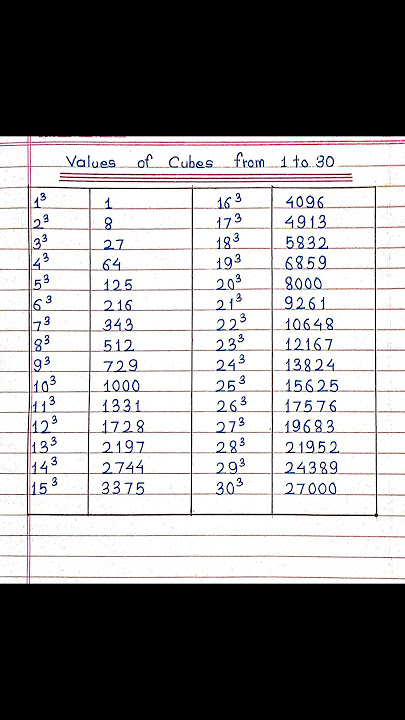 Values of Cubes from 1 to 30
1³ 1 16³ 4096
2³ 8 17³ 4913
3³ 27 18³ 5832
4³ 64 19³ 6859
5³ 125 20³ 8000
6³ 216 21³ 9261
7³ 343 22³ 10648
8³ 512 23³ 12167
9³ 729 24³ 13824
10³ 1000 25³ 15625
11³ 1331 26³ 17576
12³ 1728 27³ 19683
13³ 2197 28³ 21952
14³ 2744 29³ 24389
15³ 3375 30³ 27000